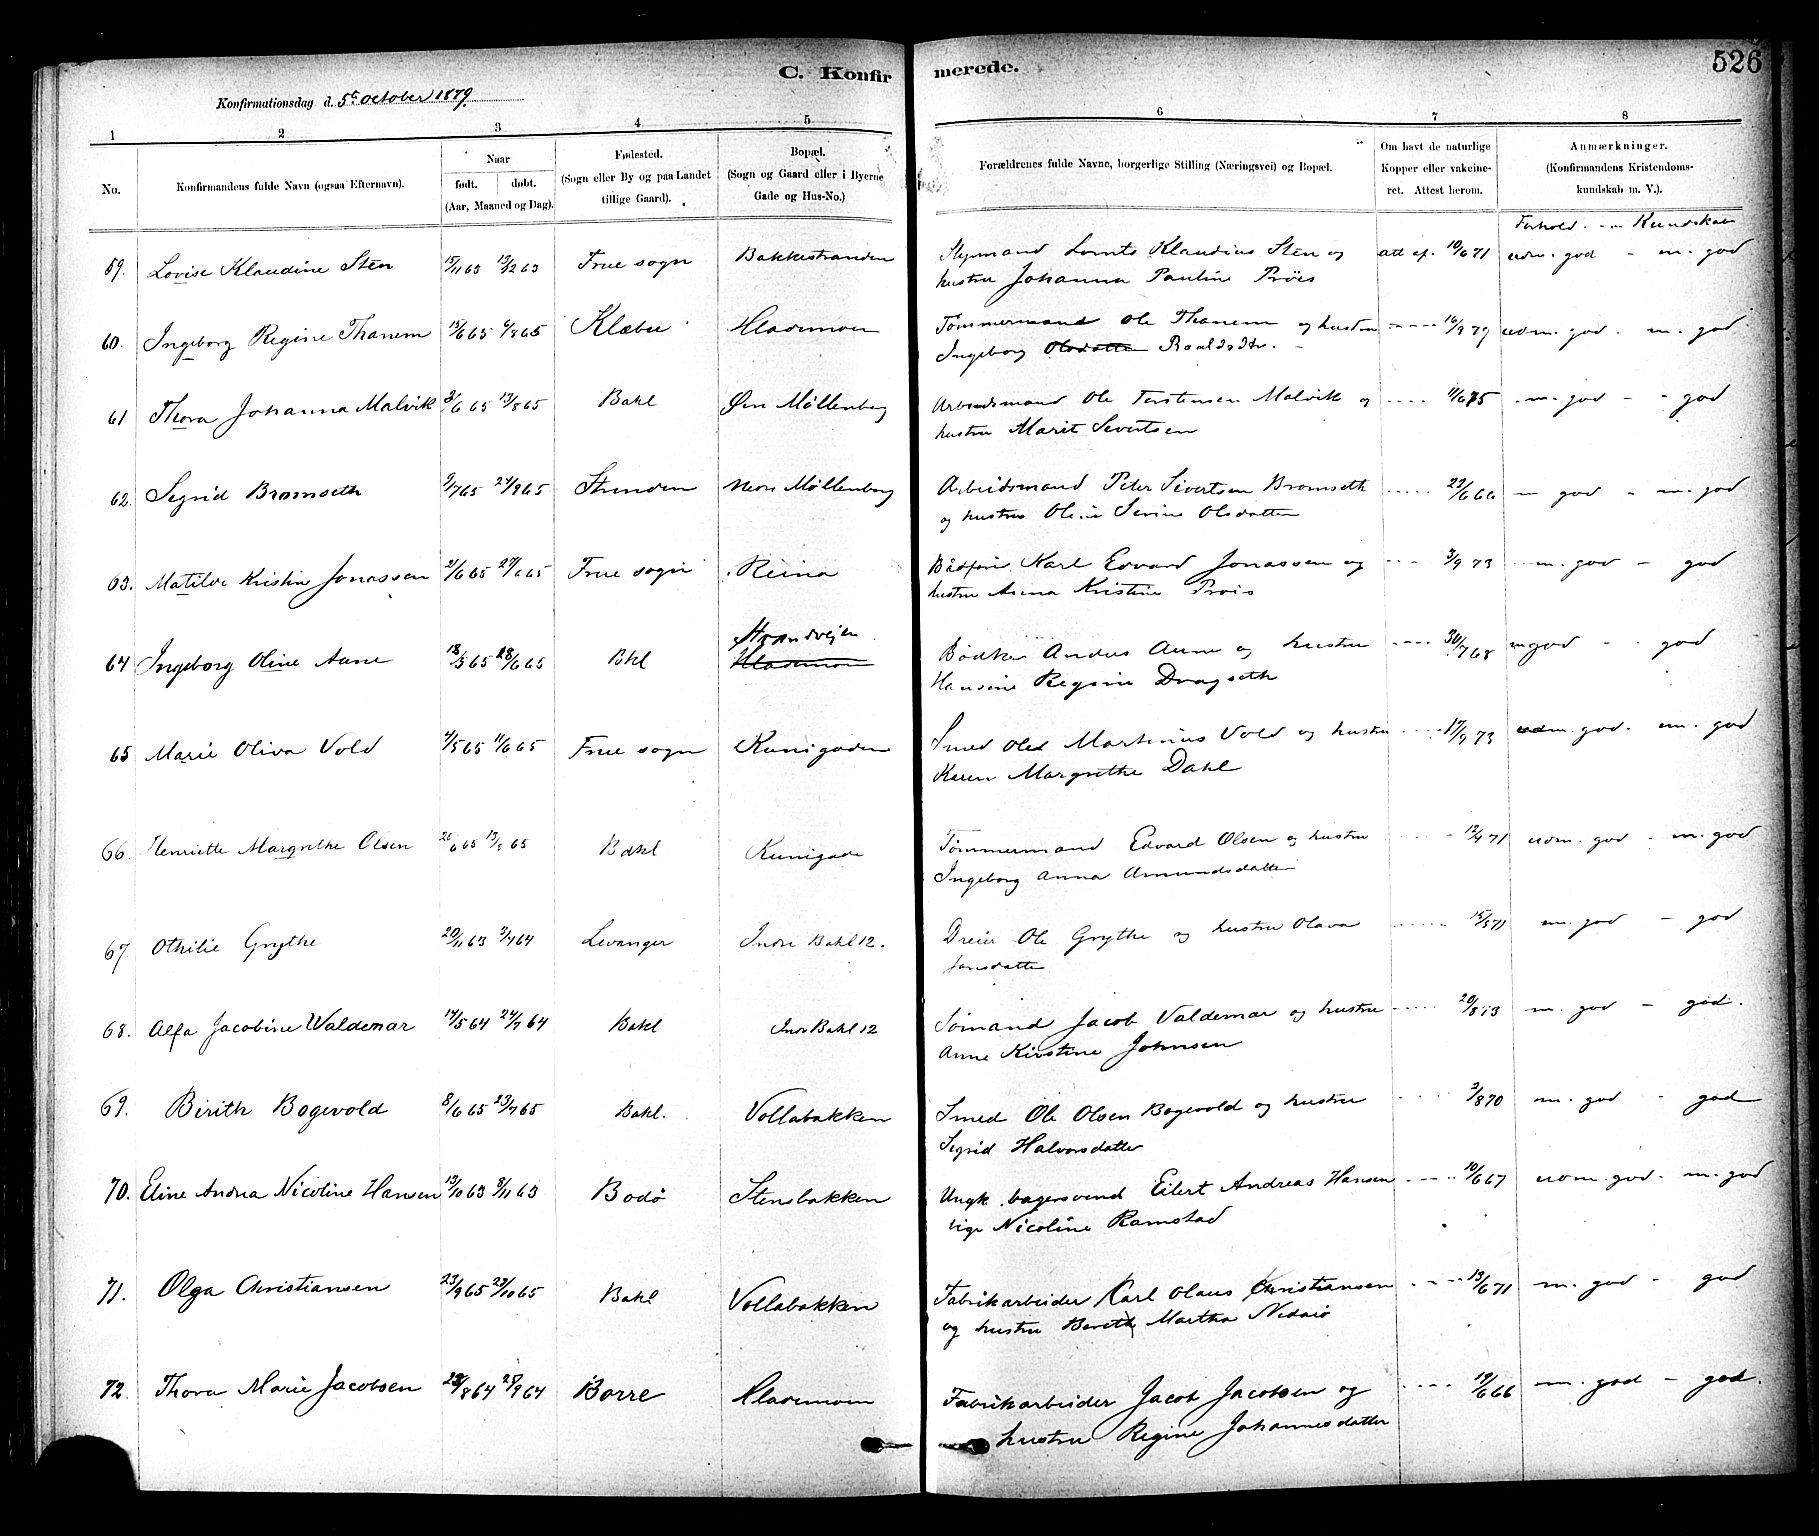 C. Konfirmerede.
526
Konfirmationsdag d. 5te October 1879.
1 2 3 4 5 6 7 8
No.
Konfirmandens fulde Navn (ogsaa Efternavn).
Naar
født. døbt.
(Aar, Maaned og Dag).
Fødested.
(Sogn eller By og paa Landet
tillige Gaard).
Bopæl.
(Sogn og Gaard eller i Byerne
Gade og Hus-No.)
Forældrenes fulde Navne, borgerlige Stilling (Næringsvei) og Bopæl.
Om havt de naturlige
Kopper eller vakcine-
ret. Attest herom.
Anmærkninger.
(Konfirmandens Kristendoms-
kundskab m. V.).
Forhold. Kundskab
59. Lovise Klaudine Sten 63 13/12 63 Frue sogn Bakkestranden Styrmand Lornts Klaudius Sten og att af. 10/6 71 udm. god - m. god
hustru Johanna Pauline Pröis
60. Ingeborg Regine Thanem 15/6 65 6/8 65 Klæbu Hlademoen Tömmermand Ole Thanem og hustru 16/9 79 udm. god. m. god
Ingeborg Olsdatter Roaldsdtr.
61 Thora Johanna Malvik 3/6 65 13/8 65 Bakl Övre Möllenberg Arbeidsmand Ole Torstensen Malvik og 11/6 75 m. god - - god
hustru Marit Sivertsen
62. Sigrid Bromseth 9/7 65 24/9 65 Strinden Nedre Möllenberg Arbeidsmand Peter Sivertsen Bromseth 29/6 66 m god - m. god
og hustru Oline Serine Olsdatter
63. Matilde Kristine Jonassen 2/6 65 65 Frue sogn Reina Bådfører Karl Edvard Jonassen og 3/9 73 m. god - god
hustru Anna Kristine Pröis
64 Ingeborg Oline Aune 18/5 65 18/6 65 Bkl Strandvejen Hlademoen Bödker Anders Aune og hustru 30/7 68 m god - - god
Hansine Regine Dragseth
65 Marie Oliva Vold 4/5 65 11/6 65 Frue sogn Kunigaden Smed Oled Martinus Vold og hustru 17/9 73 udm. god. m. god
Karen Margrethe Dahl
66. Henriette Margrethe Olsen 25/6 65 65 Bakl Kunigade Tömmermand Edvard Olsen og hustru 12/4 71 udm. god - m. god
Ingeborg Anna Amundsdatter
67 Othilie Grythe 20/11 63 3/4 64 Levanger Indre Bakl 12. Dreier Ole Grythe og hustru Olava 15/5 71 m. god - god
Jonsdatter
68. Alfa Jacobine Waldemar 14/5 64 24/7 64 Bakl Indr Bakl 12 Sömand Jacob Valdemar og hustru 20/8 73 m. god - god.
Anne Kirstine Johnsen
69. Birith Bogevold 8/6 65 23/7 65 Bakl. Vollabakken Smed Ole Olsen Bogevold og hustru 2/8 70 m. god - god
Sigrid Halvorsdatter
70. Eline Andrea Nicoline Hansen 13/10 63 8/11 63 Bodö Stensbakken Ungk. bagersvend Eilert Andreas Hansen 10/6 67 udm. god - m. god
pige Nicoline Ramstad
71. Olga Christiansen 23/9 65 29/10 65 Bakl Vollabakken Fabrikarbeider Karl Olaus Christiansen 13/6 71 m. god - god
og hustru Bereth Martha Nidarö
72. Thora Marie Jacobsen 28/8 64 25/9 64 Borre Hlademoen Fabrikarbeider Jacob Jacobsen og 19/6 66 m. god - god.
hustru Regine Johannesdatter